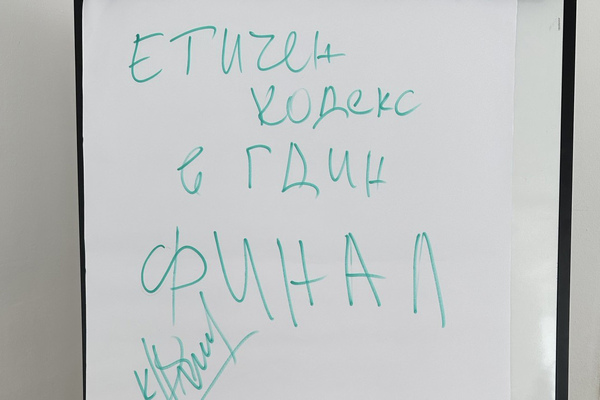 ЕТИЧЕН
КОДЕКС
в ГДИН
ФИНАЛ